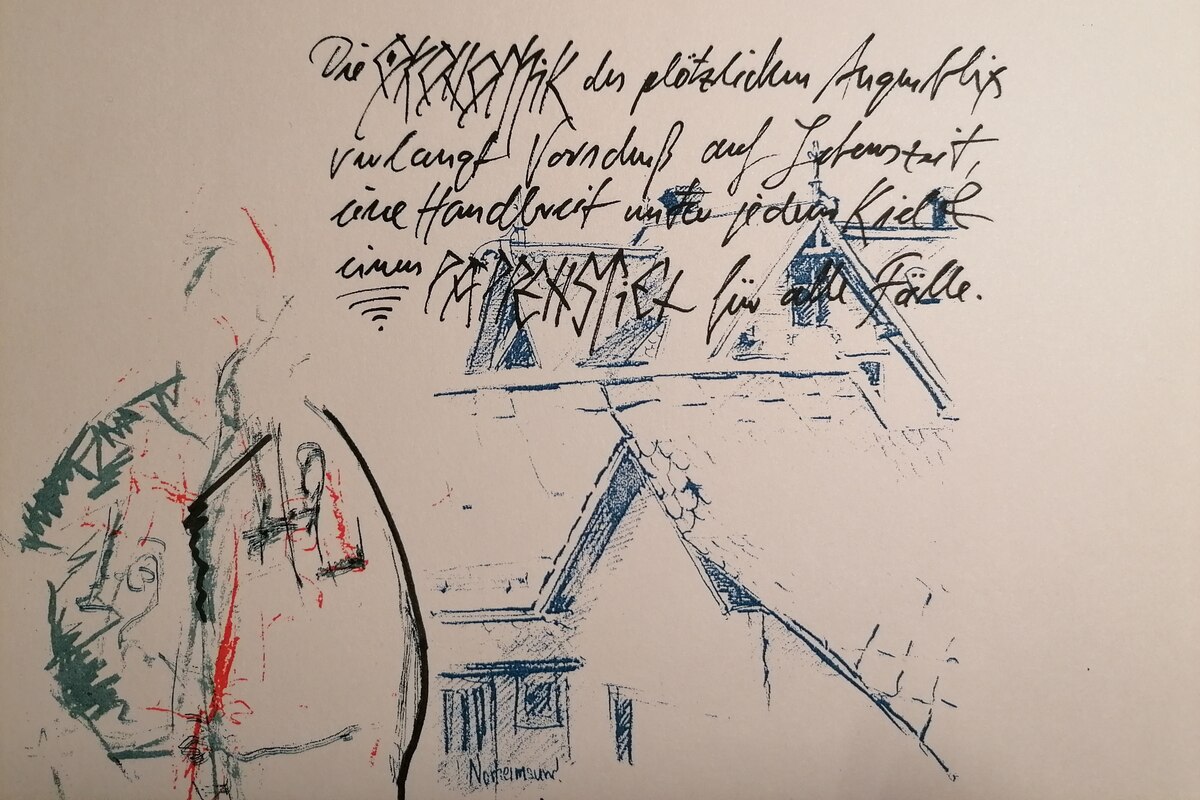 Die ÖKONOMiK des plötzlichen Augenblix
verlangt Vorschuß auf Lebenszeit,
eine Handbreit unter jedem Kiel &
einen PAPPENSTiEL für alle Fälle.